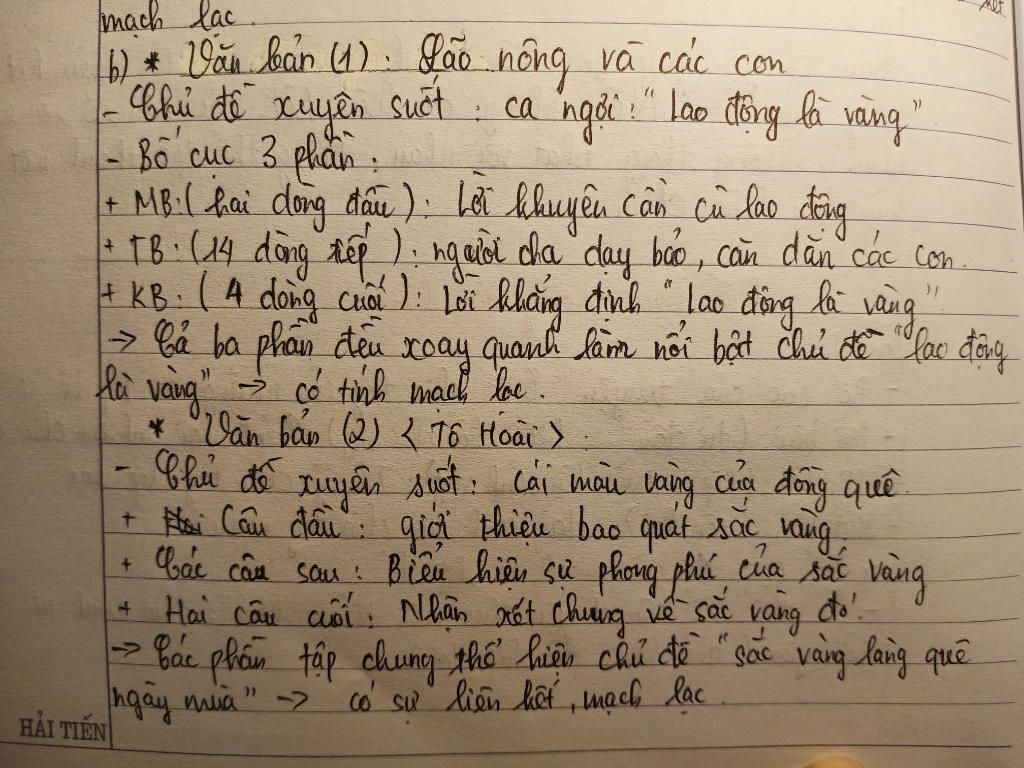 mạch lạc.
b) * Văn bản (1): Lão nông và các con
- Chủ đề xuyên suốt: ca ngợi: "Lao động là vàng"
- Bố cục 3 phần:
+ MB: (hai dòng đầu): Lời khuyên cần cù lao động
+ TB: (14 dòng tiếp): người cha dạy bảo, căn dặn các con.
+ KB: (4 dòng cuối): Lời khẳng định "lao động là vàng"
→ Cả ba phần đều xoay quanh làm nổi bật chủ đề "lao động
là vàng" → có tính mạch lạc.
* Văn bản (2) < Tô Hoài >
- Chủ đề xuyên suốt: cái màu vàng của đồng quê
+ Câu đầu: giới thiệu bao quát sắc vàng
+ Các câu sau: Biểu hiện sự phong phú của sắc vàng
+ Hai câu cuối: Nhận xét chung về sắc vàng đó.
→ Các phần tập chung thể hiện chủ đề "sắc vàng làng quê
ngày mùa" → có sự liên kết, mạch lạc.
HẢI TIẾN